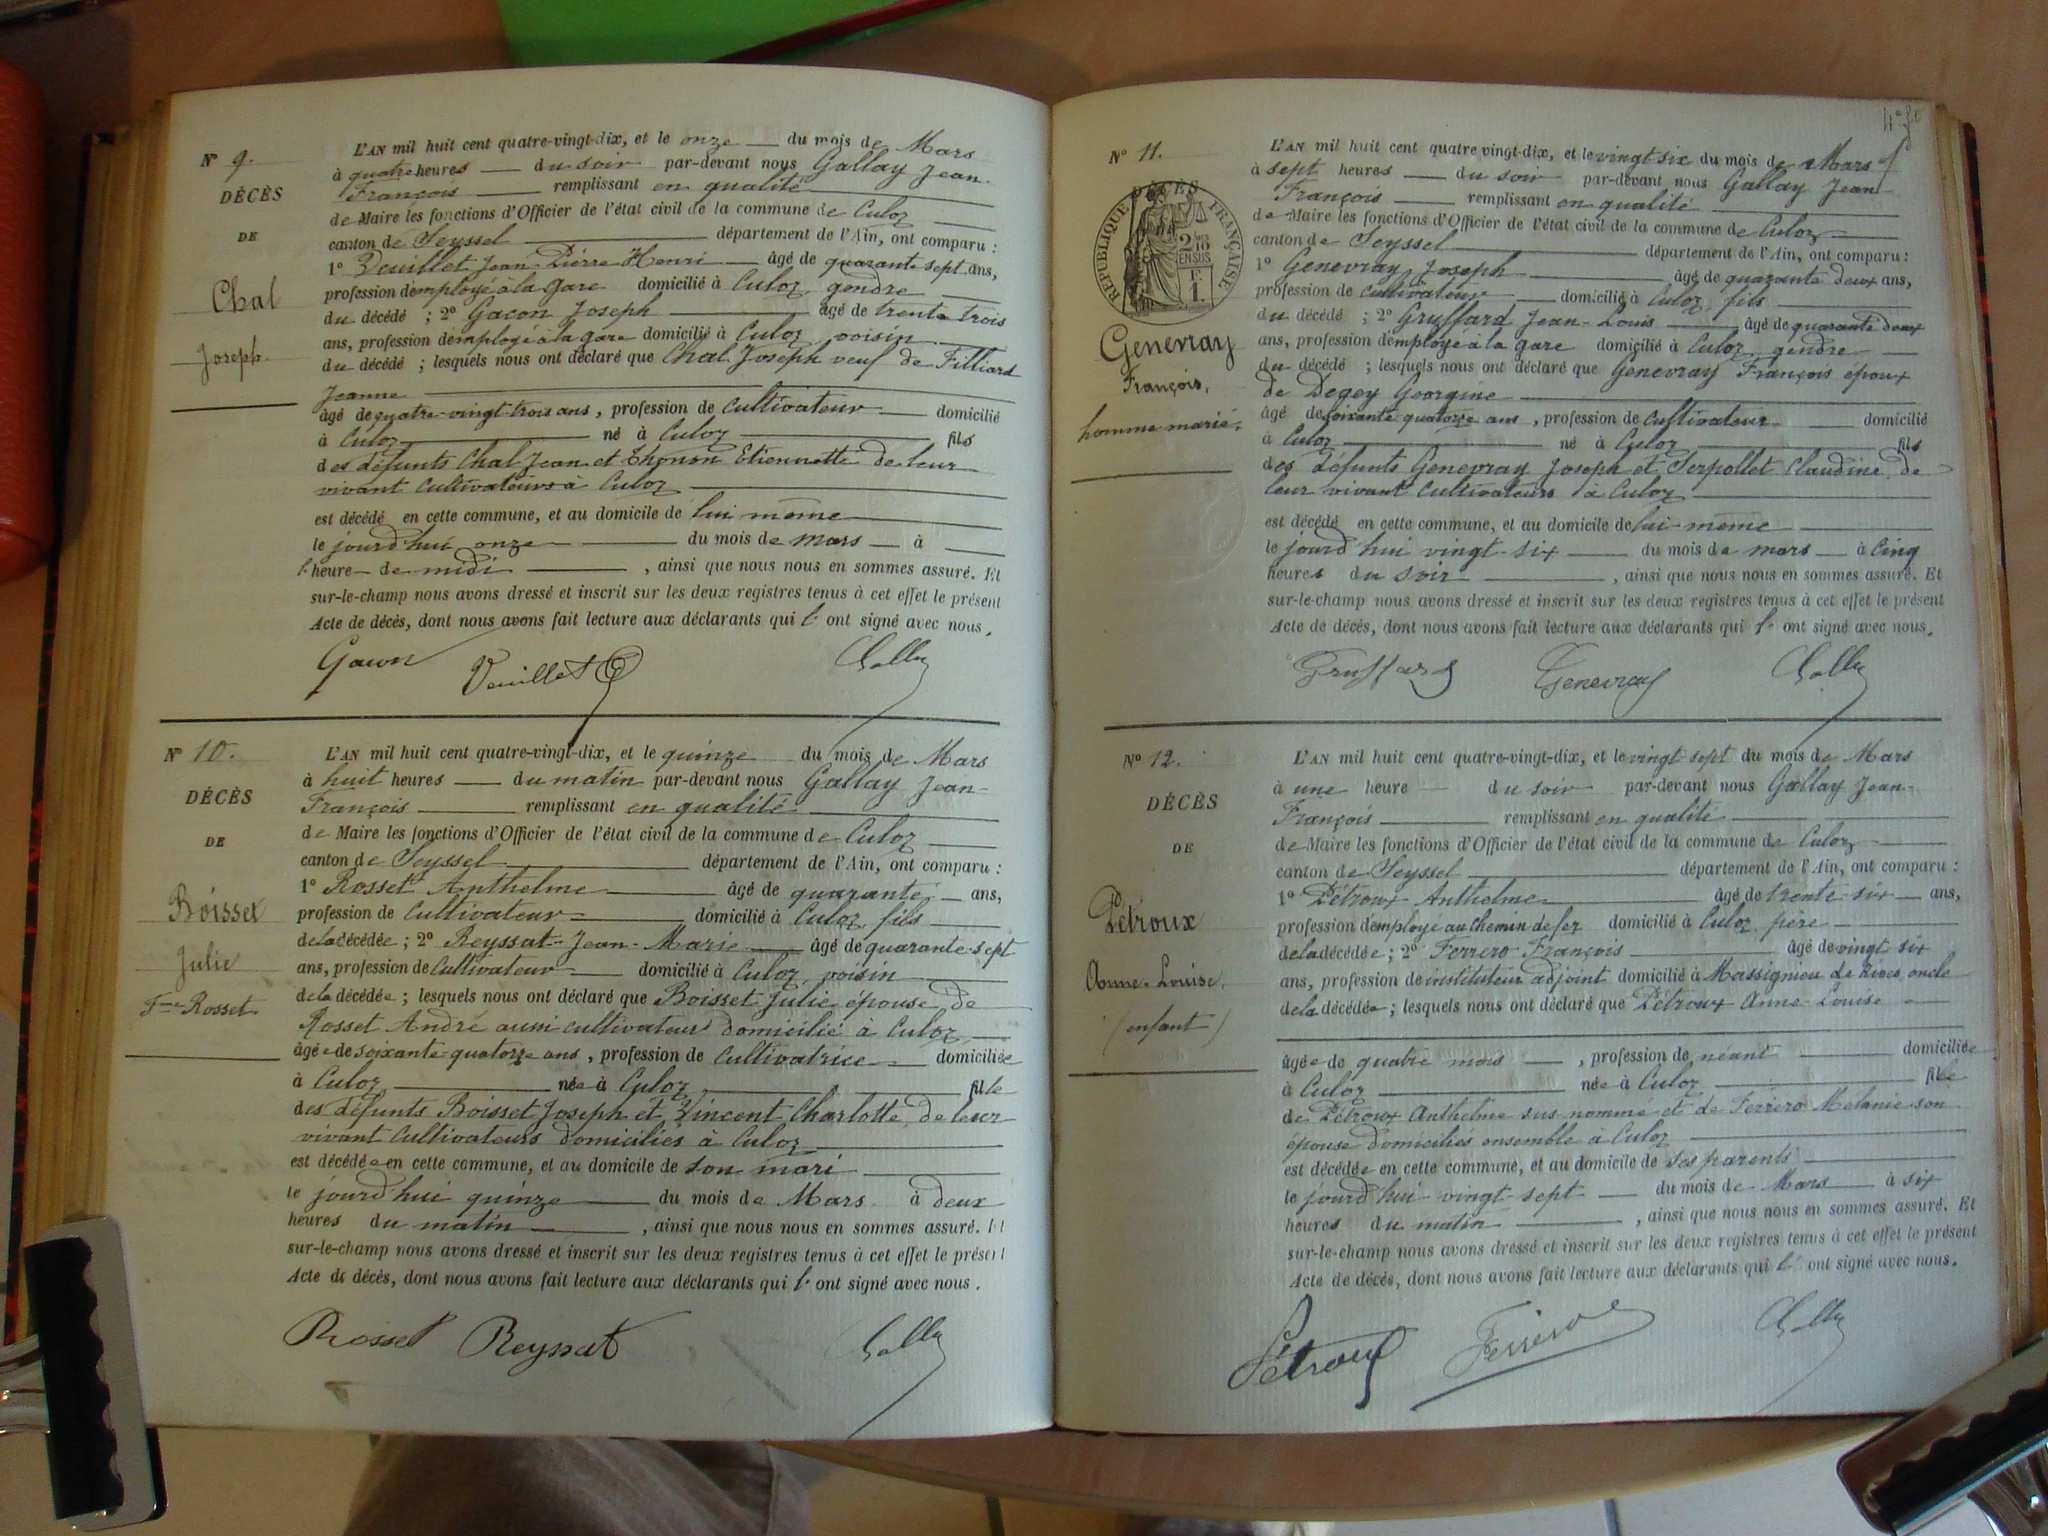 N° 9.
DÉCÈS
DE
Chal
Joseph.
L'AN mil huit cent quatre-vingt-dix, et le onze du mois de Mars
à quatre heures du soir par-devant nous Gallay Jean-
François remplissant en qualité
de Maire les fonctions d'Officier de l'état civil de la commune de Culoz
canton de Seyssel département de l'Ain, ont comparu :
1° Veuillet Jean-Pierre Henri âgé de quarante sept ans,
profession d'employé à la gare domicilié à Culoz gendre
du décédé ; 2° Gacon Joseph âgé de trente trois
ans, profession d'employé à la gare domicilié à Culoz voisin
du décédé ; lesquels nous ont déclaré que Chal Joseph veuf de Filliard
Jeanne
âgé de quatre-vingt-trois ans, profession de cultivateur domicilié
à Culoz né à Culoz fils
des défunts Chal Jean et Thonon Etiennette de leur
vivant cultivateurs à Culoz
est décédé en cette commune, et au domicile de lui même
le jourd'hui onze du mois de mars à
l'heure de midi , ainsi que nous nous en sommes assuré. Et
sur-le-champ nous avons dressé et inscrit sur les deux registres tenus à cet effet le présent
Acte de décès, dont nous avons fait lecture aux déclarants qui l' ont signé avec nous.
Gacon Veuillet Gallay
N° 10.
DÉCÈS
DE
Boisset
Julie
Fme Rosset
L'AN mil huit cent quatre-vingt-dix, et le quinze du mois de Mars
à huit heures du matin par-devant nous Gallay Jean-
François remplissant en qualité
de Maire les fonctions d'Officier de l'état civil de la commune de Culoz
canton de Seyssel département de l'Ain, ont comparu :
1° Rosset Anthelme âgé de quarante ans,
profession de cultivateur domicilié à Culoz fils
de la décédée ; 2° Reyssat Jean-Marie âgé de quarante-sept
ans, profession de cultivateur domicilié à Culoz voisin
de la décédée ; lesquels nous ont déclaré que Boisset Julie épouse de
Rosset André aussi cultivateur domicilié à Culoz
âgée de soixante quatorze ans, profession de cultivatrice domiciliée
à Culoz née à Culoz fille
des défunts Boisset Joseph et Vincent Charlotte, de leur
vivant cultivateurs domiciliés à Culoz
est décédée en cette commune, et au domicile de son mari
le jourd'hui quinze du mois de Mars à deux
heures du matin , ainsi que nous nous en sommes assuré. Et
sur-le-champ nous avons dressé et inscrit sur les deux registres tenus à cet effet le présent
Acte de décès, dont nous avons fait lecture aux déclarants qui l' ont signé avec nous.
Rosset Reyssat Gallay
N° 11.
DÉCÈS
RÉPUBLIQUE FRANÇAISE
2 10mes EN SUS
1 F.
Genevray
François,
homme marié,
L'AN mil huit cent quatre vingt-dix, et le vingt six du mois de Mars
à sept heures du soir par-devant nous Gallay Jean-
François remplissant en qualité
de Maire les fonctions d'Officier de l'état civil de la commune de Culoz
canton de Seyssel département de l'Ain, ont comparu :
1° Genevray Joseph âgé de quarante deux ans,
profession de cultivateur domicilié à Culoz fils
du décédé ; 2° Gruffard Jean-Louis âgé de quarante deux
ans, profession d'employé à la gare domicilié à Culoz gendre
du décédé ; lesquels nous ont déclaré que Genevray François époux
de Degoy Georgine
âgé de soixante quatorze ans, profession de cultivateur domicilié
à Culoz né à Culoz fils
des défunts Genevray Joseph et Serpollet Claudine de
leur vivant cultivateurs à Culoz
est décédé en cette commune, et au domicile de lui-même
le jourd'hui vingt-six du mois de mars à cinq
heures du soir , ainsi que nous nous en sommes assuré. Et
sur-le-champ nous avons dressé et inscrit sur les deux registres tenus à cet effet le présent
Acte de décès, dont nous avons fait lecture aux déclarants qui l' ont signé avec nous.
Gruffard Genevray Gallay
N° 12.
DÉCÈS
DE
Pétroux
Anne-Louise,
(enfant)
L'AN mil huit cent quatre-vingt-dix, et le vingt sept du mois de Mars
à une heure du soir par-devant nous Gallay Jean-
François remplissant en qualité
de Maire les fonctions d'Officier de l'état civil de la commune de Culoz
canton de Seyssel département de l'Ain, ont comparu :
1° Pétroux Anthelme âgé de trente-six ans,
profession d'employé au chemin de fer domicilié à Culoz père
de la décédée ; 2° Ferrero François âgé de vingt six
ans, profession de instituteur adjoint domicilié à Massignieu de Rives oncle
de la décédée ; lesquels nous ont déclaré que Pétroux Anne-Louise
âgée de quatre mois , profession de néant domiciliée
à Culoz née à Culoz fille
de Pétroux Anthelme sus nommé et de Ferrero Melanie son
épouse domiciliés ensemble à Culoz
est décédée en cette commune, et au domicile de ses parents
le jourd'hui vingt-sept du mois de Mars à six
heures du matin , ainsi que nous nous en sommes assuré. Et
sur-le-champ nous avons dressé et inscrit sur les deux registres tenus à cet effet le présent
Acte de décès, dont nous avons fait lecture aux déclarants qui l' ont signé avec nous.
Pétroux Ferrero Gallay